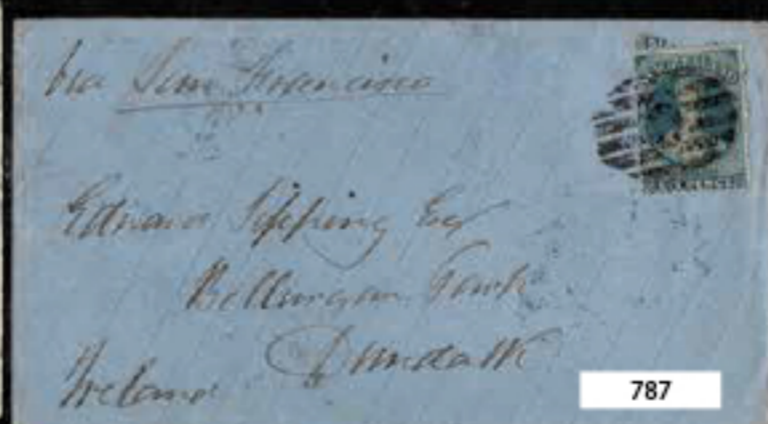 Via San Francisco
Edward Tipping Esq
Bellurgan Park
Dundalk
Ireland
787